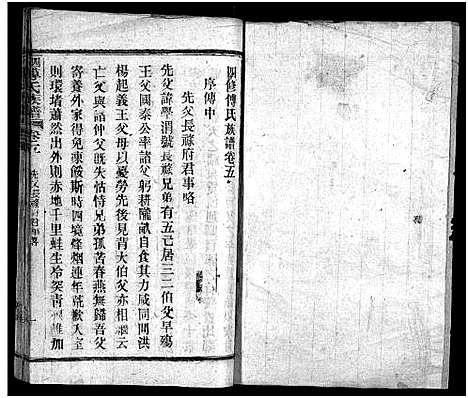 四修傅氏族譜卷五
序傳中
先父長祿府君事略
先父諱學渭號長祿兄弟有五己居三二伯父早殤
王父國泰公率諸父躬耕隴畝自食其力咸同間洪
楊起義王父母以憂勞先後見背大伯父亦相繼云
亡父與諸仲父既失怙恃兄弟孤苦春燕無歸吾父
寄養外家得免凍餒斯時四境烽烟連年荒歉入室
則環堵蕭然出外則赤地千里蛙生冷突靑
傅氏族譜 卷五 先父長祿府君事略 一